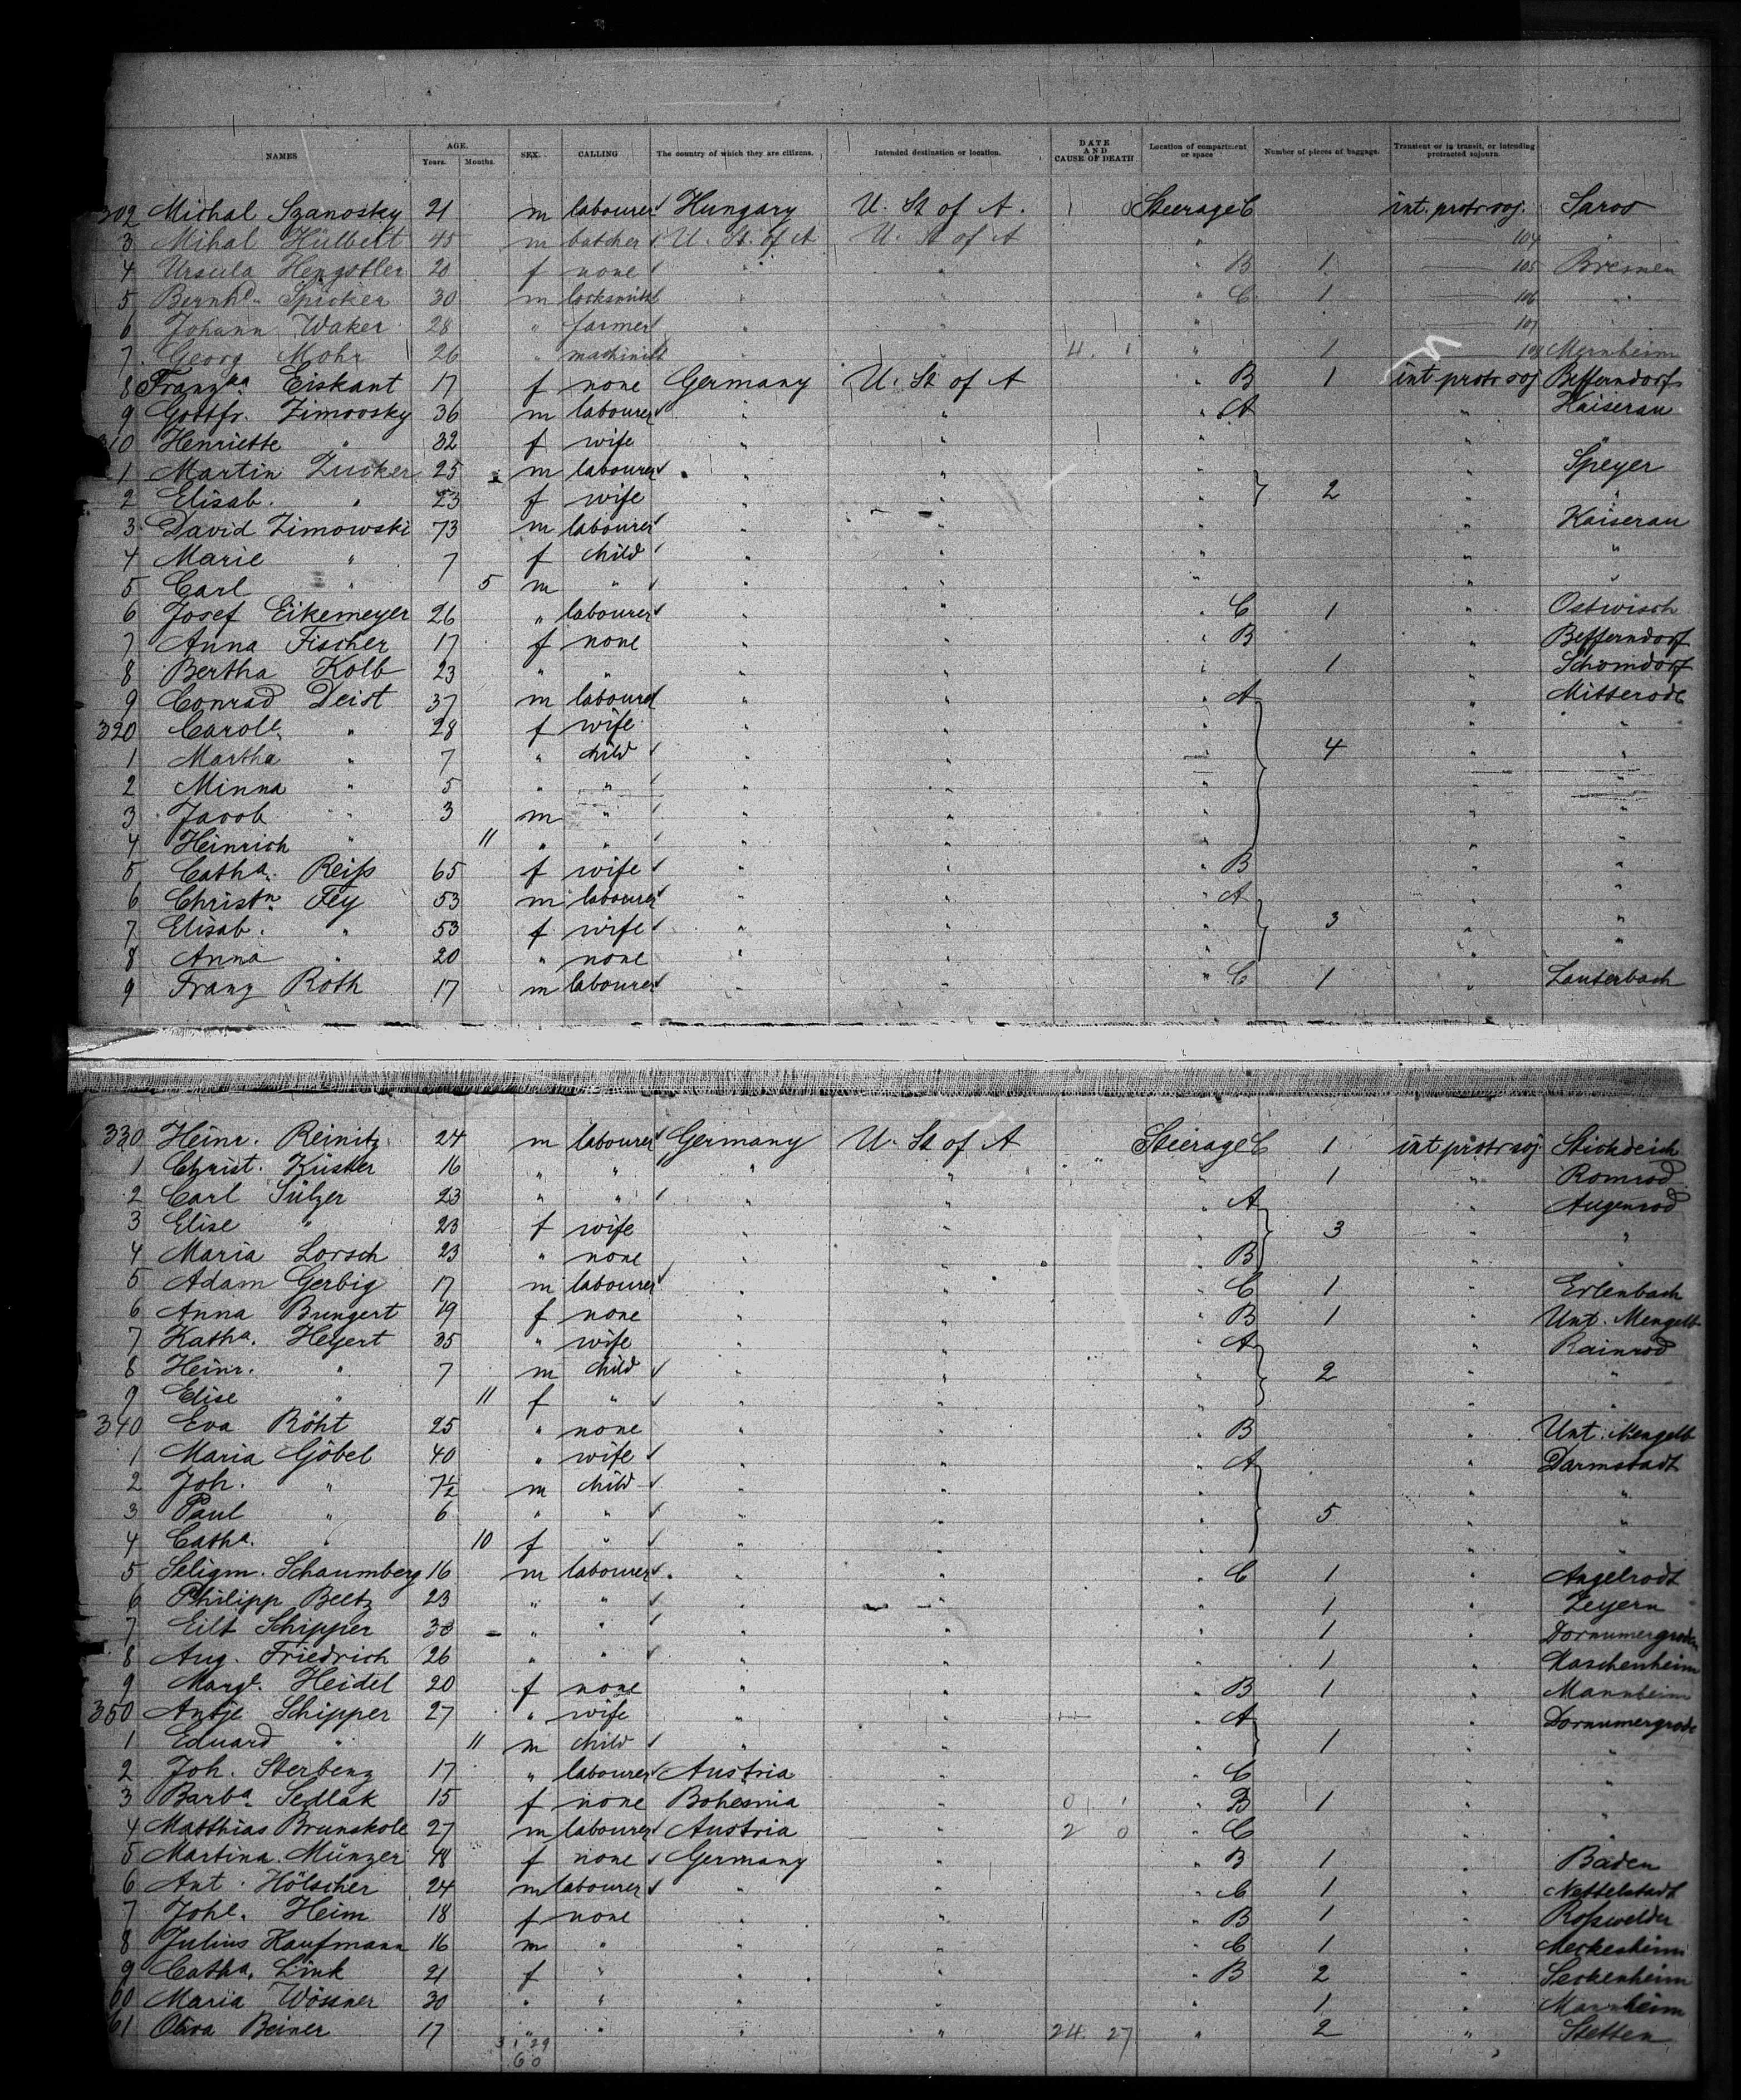 NAMES AGE. Years. Months. SEX. CALLING The country of which they are citizens. Intended destination or location. DATE AND CAUSE OF DEATH Location of compartment or space Number of pieces of baggage. Transient or in transit, or intending protracted sojourn
302 Michal Szanosky 21 m labourer Hungary U. St of A. Steerage C int. protr soj. Saros
3 Mihal Hülbert 45 m butcher U. St. of A U. St of A " 104 "
4 Ursula Hengstler 20 f none " " " B 1 105 Bremen
5 Bernhd. Spicker 30 m locksmith " " " C 1 106 "
6 Johann Waker 28 " farmer " " " 107 "
7 Georg Mohr 26 " machinist " " " 1 108
8 Franzka Eiskant 17 f none Germany U. St of A " B 1 int protr soj Befferndorf
9 Gottfr. Zimoosky 36 m labourer " " " A " Kaiserau
310 Henriette " 32 f wife " " " " "
1 Martin Zucker 25 m labourer " " " " Speyer
2 Elisab. " 23 f wife " " " 2 " "
3 David Zimowski 73 m labourer " " " " Kaiserau
4 Marie " 7 f child " " " " "
5 Carl " 5 m " " " " " "
6 Josef Eikemeyer 26 " labourer " " " C 1 " Ostwisch
7 Anna Fischer 17 f none " " " B " Befferndorf
8 Bertha Kolb 23 " " " " " 1 " Schorndorf
9 Conrad Deist 37 m labourer " " " A " Mitterode
320 Carole. " 28 f wife " " " " "
1 Martha " 7 " child " " " 4 " "
2 Minna " 5 " " " " " " "
3 Jacob " 3 m " " " " " "
4 Heinrich " 11 " " " " " " "
5 Catha. Reiß 65 f wife " " " B " "
6 Christn. Fey 53 m labourer " " " A " "
7 Elisab. " 53 f wife " " " 3 " "
8 Anna " 20 " none " " " " "
9 Franz Roth 17 m labourer " " " C 1 " Lauterbach
330 Heinr. Reinitz 24 m labourer Germany U. St of A Steerage C 1 int protr soj. Stickdeich
1 Christ. Küster 16 " " " " " 1 " Romrod
2 Carl Sülzer 23 " " " " " A " Augenrod
3 Elise " 23 f wife " " " 3 " "
4 Maria Lorsch 23 " none " " " B " "
5 Adam Gerbig 17 m labourer " " " C 1 " Erlenbach
6 Anna Bungert 19 f none " " " B 1 " Unt. Mengelb
7 Katha. Heyert 35 " wife " " " A " Rainrod
8 Heinr. " 7 m child " " " 2 " "
9 Elise " 11 f " " " " " "
340 Eva Röht 25 " none " " " B " Unt. Mengelb
1 Maria Göbel 40 " wife " " " A " Darmstadt
2 Joh. " 7½ m child " " " " "
3 Paul " 6 " " " " " 5 " "
4 Catha. " 10 f " " " " " "
5 Seligm. Schaumberg 16 m labourer " " " C 1 " Angelrodt
6 Philipp Beltz 23 " " " " " 1 " Zeyern
7 Eilt Schipper 30 " " " " " 1 " Dornumergroden
8 Aug. Friedrich 26 " " " " " 1 "
9 Margt. Heidel 20 f none " " " B 1 " Mannheim
350 Antje Schipper 27 " wife " " " A " Dornumergrode
1 Eduard " 11 m child " " " 1 " "
2 Joh. Sterbenz 17 " labourer Austria " " C "
3 Barba. Sedlak 15 f none Bohemia " " B 1 " "
4 Matthias Brunskole 27 m labourer Austria " " C " "
5 Martina Münzer 48 f none Germany " " B 1 " Baden
6 Ant. Hölscher 24 m labourer " " " C 1 " Nettelstadt
7 Johe. Heim 18 f none " " " B 1 " Roßwelder
8 Julius Kaufmann 16 m " " " " C 1 " Meckesheim
9 Catha. Link 21 f " " " " B 2 " Seckenheim
60 Maria Wössner 30 " " " " " 1 " Mannheim
61 Beiner 17 " " " " 24 27 " 2 " Stetten
31 29
60